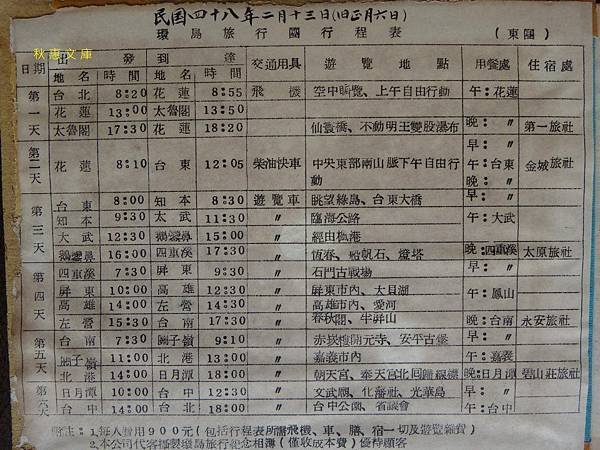 民国四十八年二月十三日(旧正月六日)
環島旅行團行程表 (東團)
秋惠文庫
日期 出發 到達 交通用具 遊覽地點 用餐處 住宿處
地名 時間 地名 時間
第一天 台北 8:20 花蓮 8:55 飛機 空中瞬覽、上午自由行動 午:花蓮
花蓮 13:00 太魯閣 13:50
太魯閣 17:30 花蓮 18:20 仙寰橋、不動明王雙股瀑布 晚:〃 第一旅社
第二天 早:〃
花蓮 8:10 台東 12:05 柴油快車 中央東部南山脈下午自由行動 午:台東 金城旅社
晚:〃
第三天 台東 8:00 知本 8:30 遊覽車 眺望綠島、台東大橋 早:〃
知本 9:30 太武 11:30 〃 臨海公路 午:大武
大武 12:30 鵝鑾鼻 15:00 〃 經由楓港
鵝鑾鼻 16:00 四重溪 17:30 〃 恆春、帆石、燈塔 晚:四重溪 太原旅社
第四天 四重溪 7:30 屏東 9:30 〃 石門古戰場 早:〃
屏東 10:00 高雄 12:30 〃 屏東市內、大貝湖 午:鳳山
高雄 14:00 左營 14:50 〃 高雄市內、愛河
左營 15:30 台南 17:30 〃 春秋閣、半屏山 晚:台南 永安旅社
第五天 台南 7:30 關子嶺 9:10 〃 赤崁樓開元寺、安平古堡 早:〃
關子嶺 11:00 北港 13:00 〃 嘉義市內 午:嘉義
北港 14:00 日月潭 18:00 〃 朝天宮、奉天宮北回歸線標 晚:日月潭 碧山莊旅社
第六天 日月潭 10:00 台中 12:30 〃 文武廟、化蕃社、光華島 早:〃
台中 14:00 台北 18:00 〃 台中公園、省議會 午:台中
附注:1.每人費用900元(包括行程表所需飛機、車、膳、宿一切及遊覽雜費)
2.本公司代客攝製環島旅行紀念相簿(僅收成本費)優待顧客